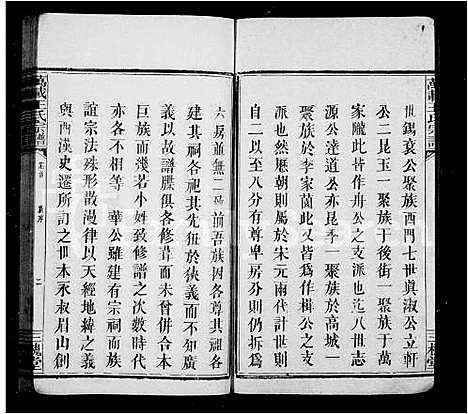 世錫袞公聚族西門七世奠淑公立軒
公二昆玉一聚族于後街一聚族于萬
家隴此皆作舟公之支派也迄八世志
源公達道公示季一聚族於高城一
聚族於李家菌此又皆爲作楫公之支
派也然歷朝則屬於宋元兩代其居則
自二以至八分有尊卑房分則仍拆爲
六房並無二房前吾族因各尊其祖各
建其祠各祀其先徒於狹義而不知廣
義以故譜牒俱各修葺而未曾併合本
族百而幾若小姓致修譜之次數時代
亦各不相同 華公雖建有宗祠而族
誼宗法殊形散漫律以天經地緯之義
與西漢史遷所訂之世本永叔眉山創
萬載王氏宗譜
三槐堂